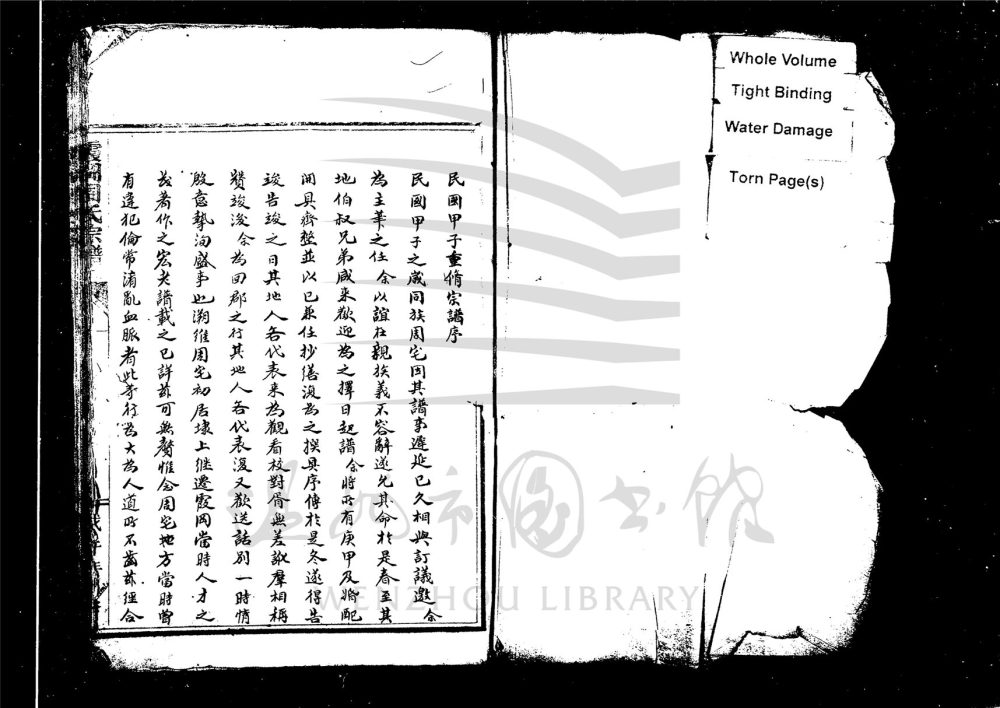 民國甲子重脩宗譜序
民國甲子之歲同族周宅因其譜事遲延已久相與訂議邀余
為主筆之任余以誼在親族義不容辭遂允其命於是春至其
地伯叔兄弟咸來歡迎為之擇日起譜余將所有庚甲及婚配
開具齊整並以已兼任抄繕復為之撰具序傳於是冬遂得告
竣告竣之日其地人各代表來為觀看校對胥無差訛羣相稱
贊竣後余為回郡之行其地人各代表復又歡送話別一時情
殷意摯洵盛事也溯維周宅初居埭上繼遷霞岡當時人才之
著作之宏夫譜載之已詳茲可無贅惟念周宅地方當時曾
有逢犯倫常淆亂血脈者此等行為大為人道所不齒茲經合
周氏宗譜
Whole Volume
Tight Binding
Water Damage
Torn Page(s)
温州市圖書館
WENZHOU LIBRARY